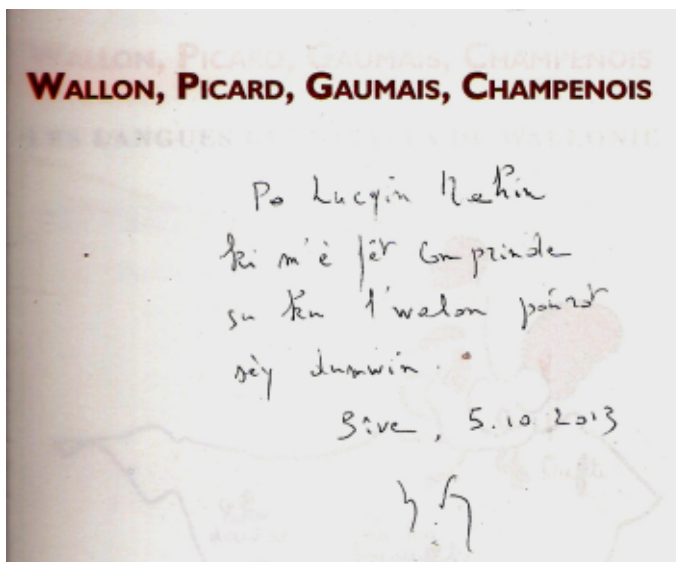 WALLON, PICARD, GAUMAIS, CHAMPENOIS
Po Lucyin Mahin
ki m'è fêt comprinde
su ku l'walon poûrot
sèy dumwin.
Sîve, 5.10.2013